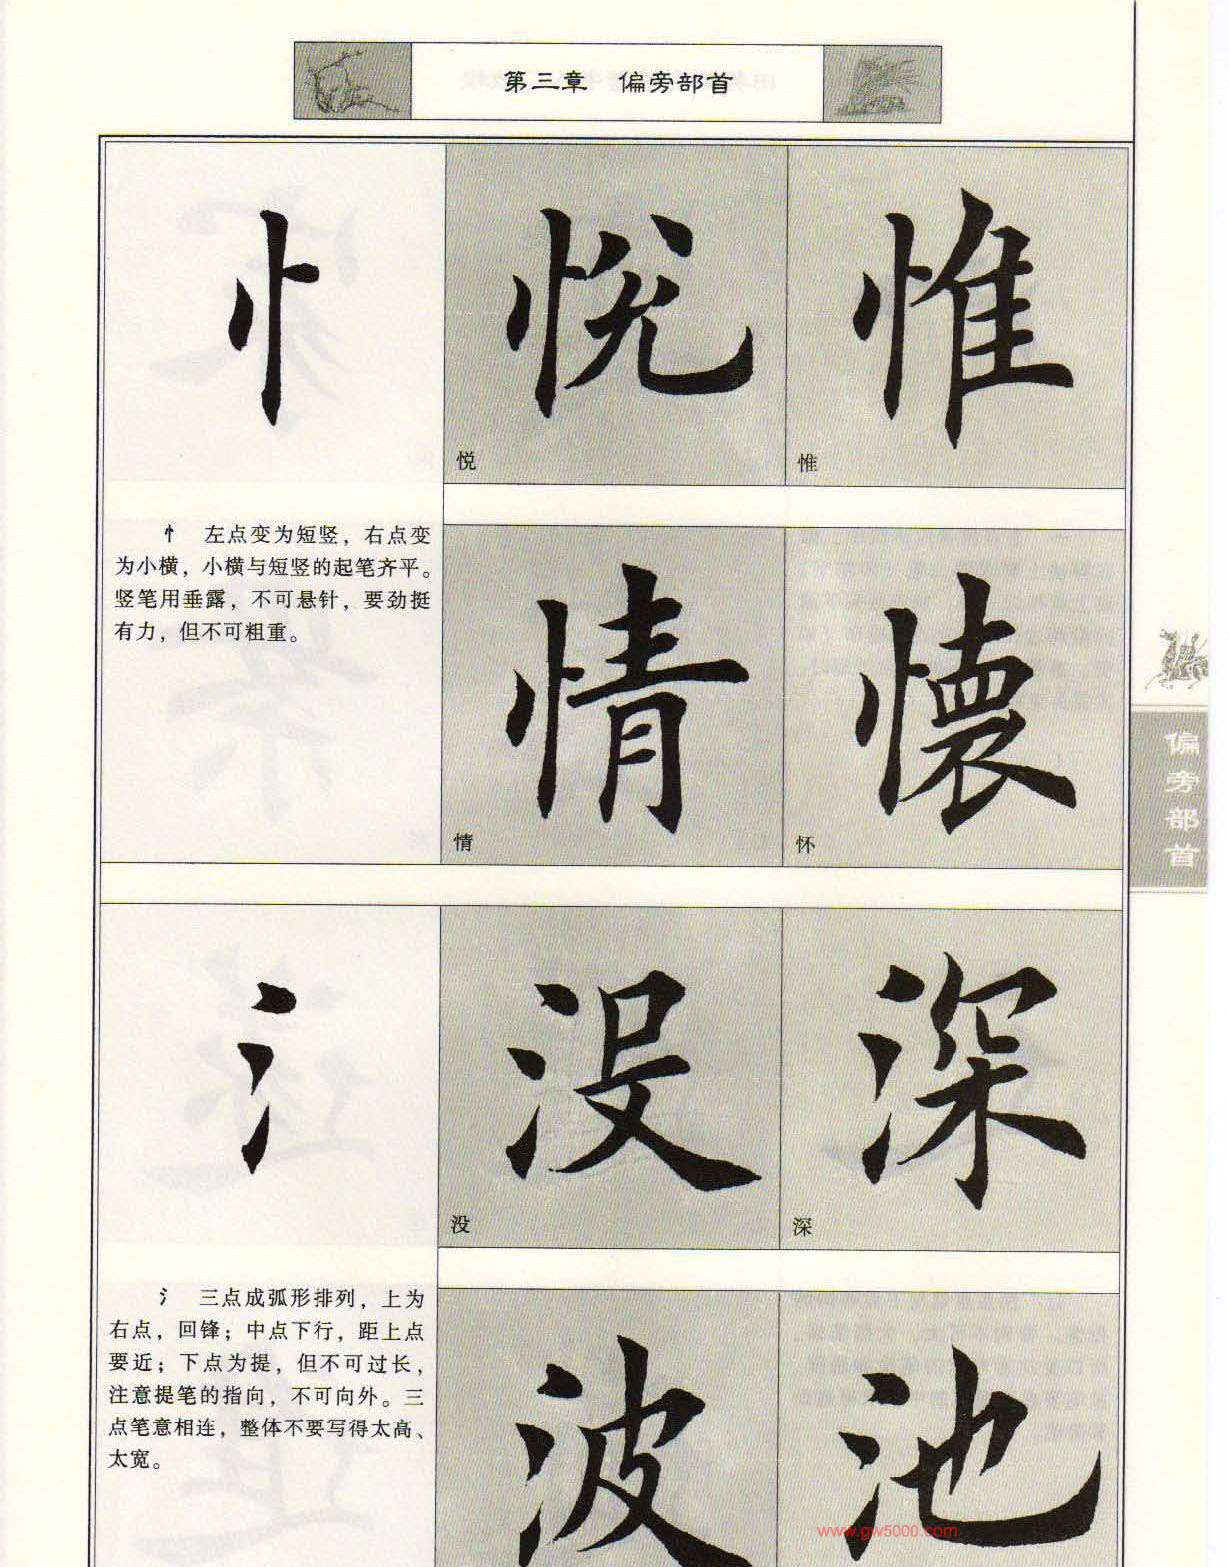 第三章 偏旁部首
忄
悦
惟
悦
惟
忄 左点变为短竖，右点变
为小横，小横与短竖的起笔齐平。
竖笔用垂露，不可悬针，要劲挺
有力，但不可粗重。
情
懷
情
怀
偏旁部首
氵
没
深
没
深
氵 三点成弧形排列，上为
右点，回锋；中点下行，距上点
要近；下点为提，但不可过长，
注意提笔的指向，不可向外。三
点笔意相连，整体不要写得太高、
太宽。
波
池
www.gw5000.com